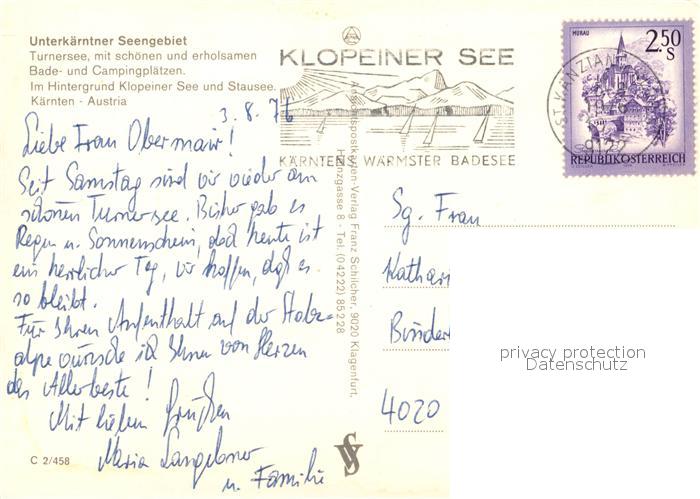 Unterkärntner Seengebiet
Turnersee, mit schönen und erholsamen
Bade- und Campingplätzen.
Im Hintergrund Klopeiner See und Stausee.
Kärnten - Austria
C 2/458
3.8.76
Liebe Frau Obermair!
Seit Samstag sind wir wieder am
schönen Turnersee. Bisher gab es
Regen u. Sonnenschein, doch heute ist
ein herrlicher Tag, wir hoffen, daß es
so bleibt.
Für Ihren Aufenthalt auf der Stolz-
alpe wünsche ich Ihnen von Herzen
das Allerbeste!
Mit lieben Grüßen
Maria
u. Familie
Ansichtspostkarten-Verlag Franz Schilcher, 9020 Klagenfurt,
Tel. (04222) 85228
KLOPEINER SEE
KÄRNTENS WÄRMSTER BADESEE
ST. KANZIAN
9122
MURAU
2.50
S
REPUBLIK ÖSTERREICH
Sg. Frau
Kathar
Binder
4020
privacy protection
Datenschutz